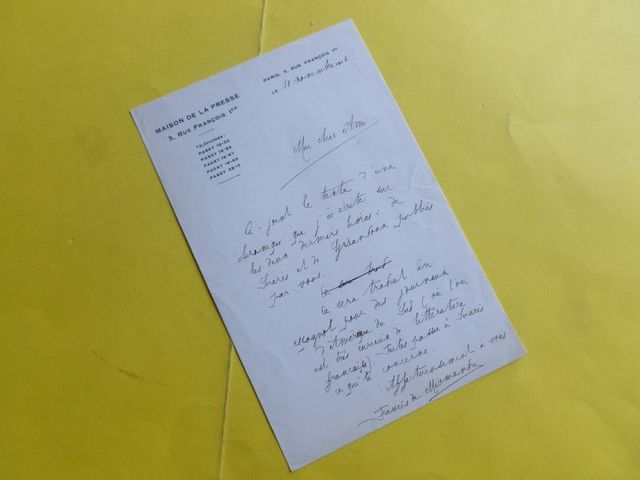 MAISON DE LA PRESSE
3, RUE FRANÇOIS 1ER
TÉLÉPHONES:
PASSY 16-95
PASSY 16-96
PASSY 16-97
PASSY 16-99
PARIS, 3, RUE FRANÇOIS 1ER
LE 10 novembre 1916
Mon cher Ami
Ci-joint le texte d'une
chronique que j'ai écrite sur
les deux derniers livres: de
Suarès et de publiés
par vous.
Ce sera traduit en
espagnol pour des journaux
d'Amérique du Sud (où l'on
est très curieux de littérature
française). Faites passer à Suarès
ce qui le concerne
Affectueusement à vous
Francis de Miomandre